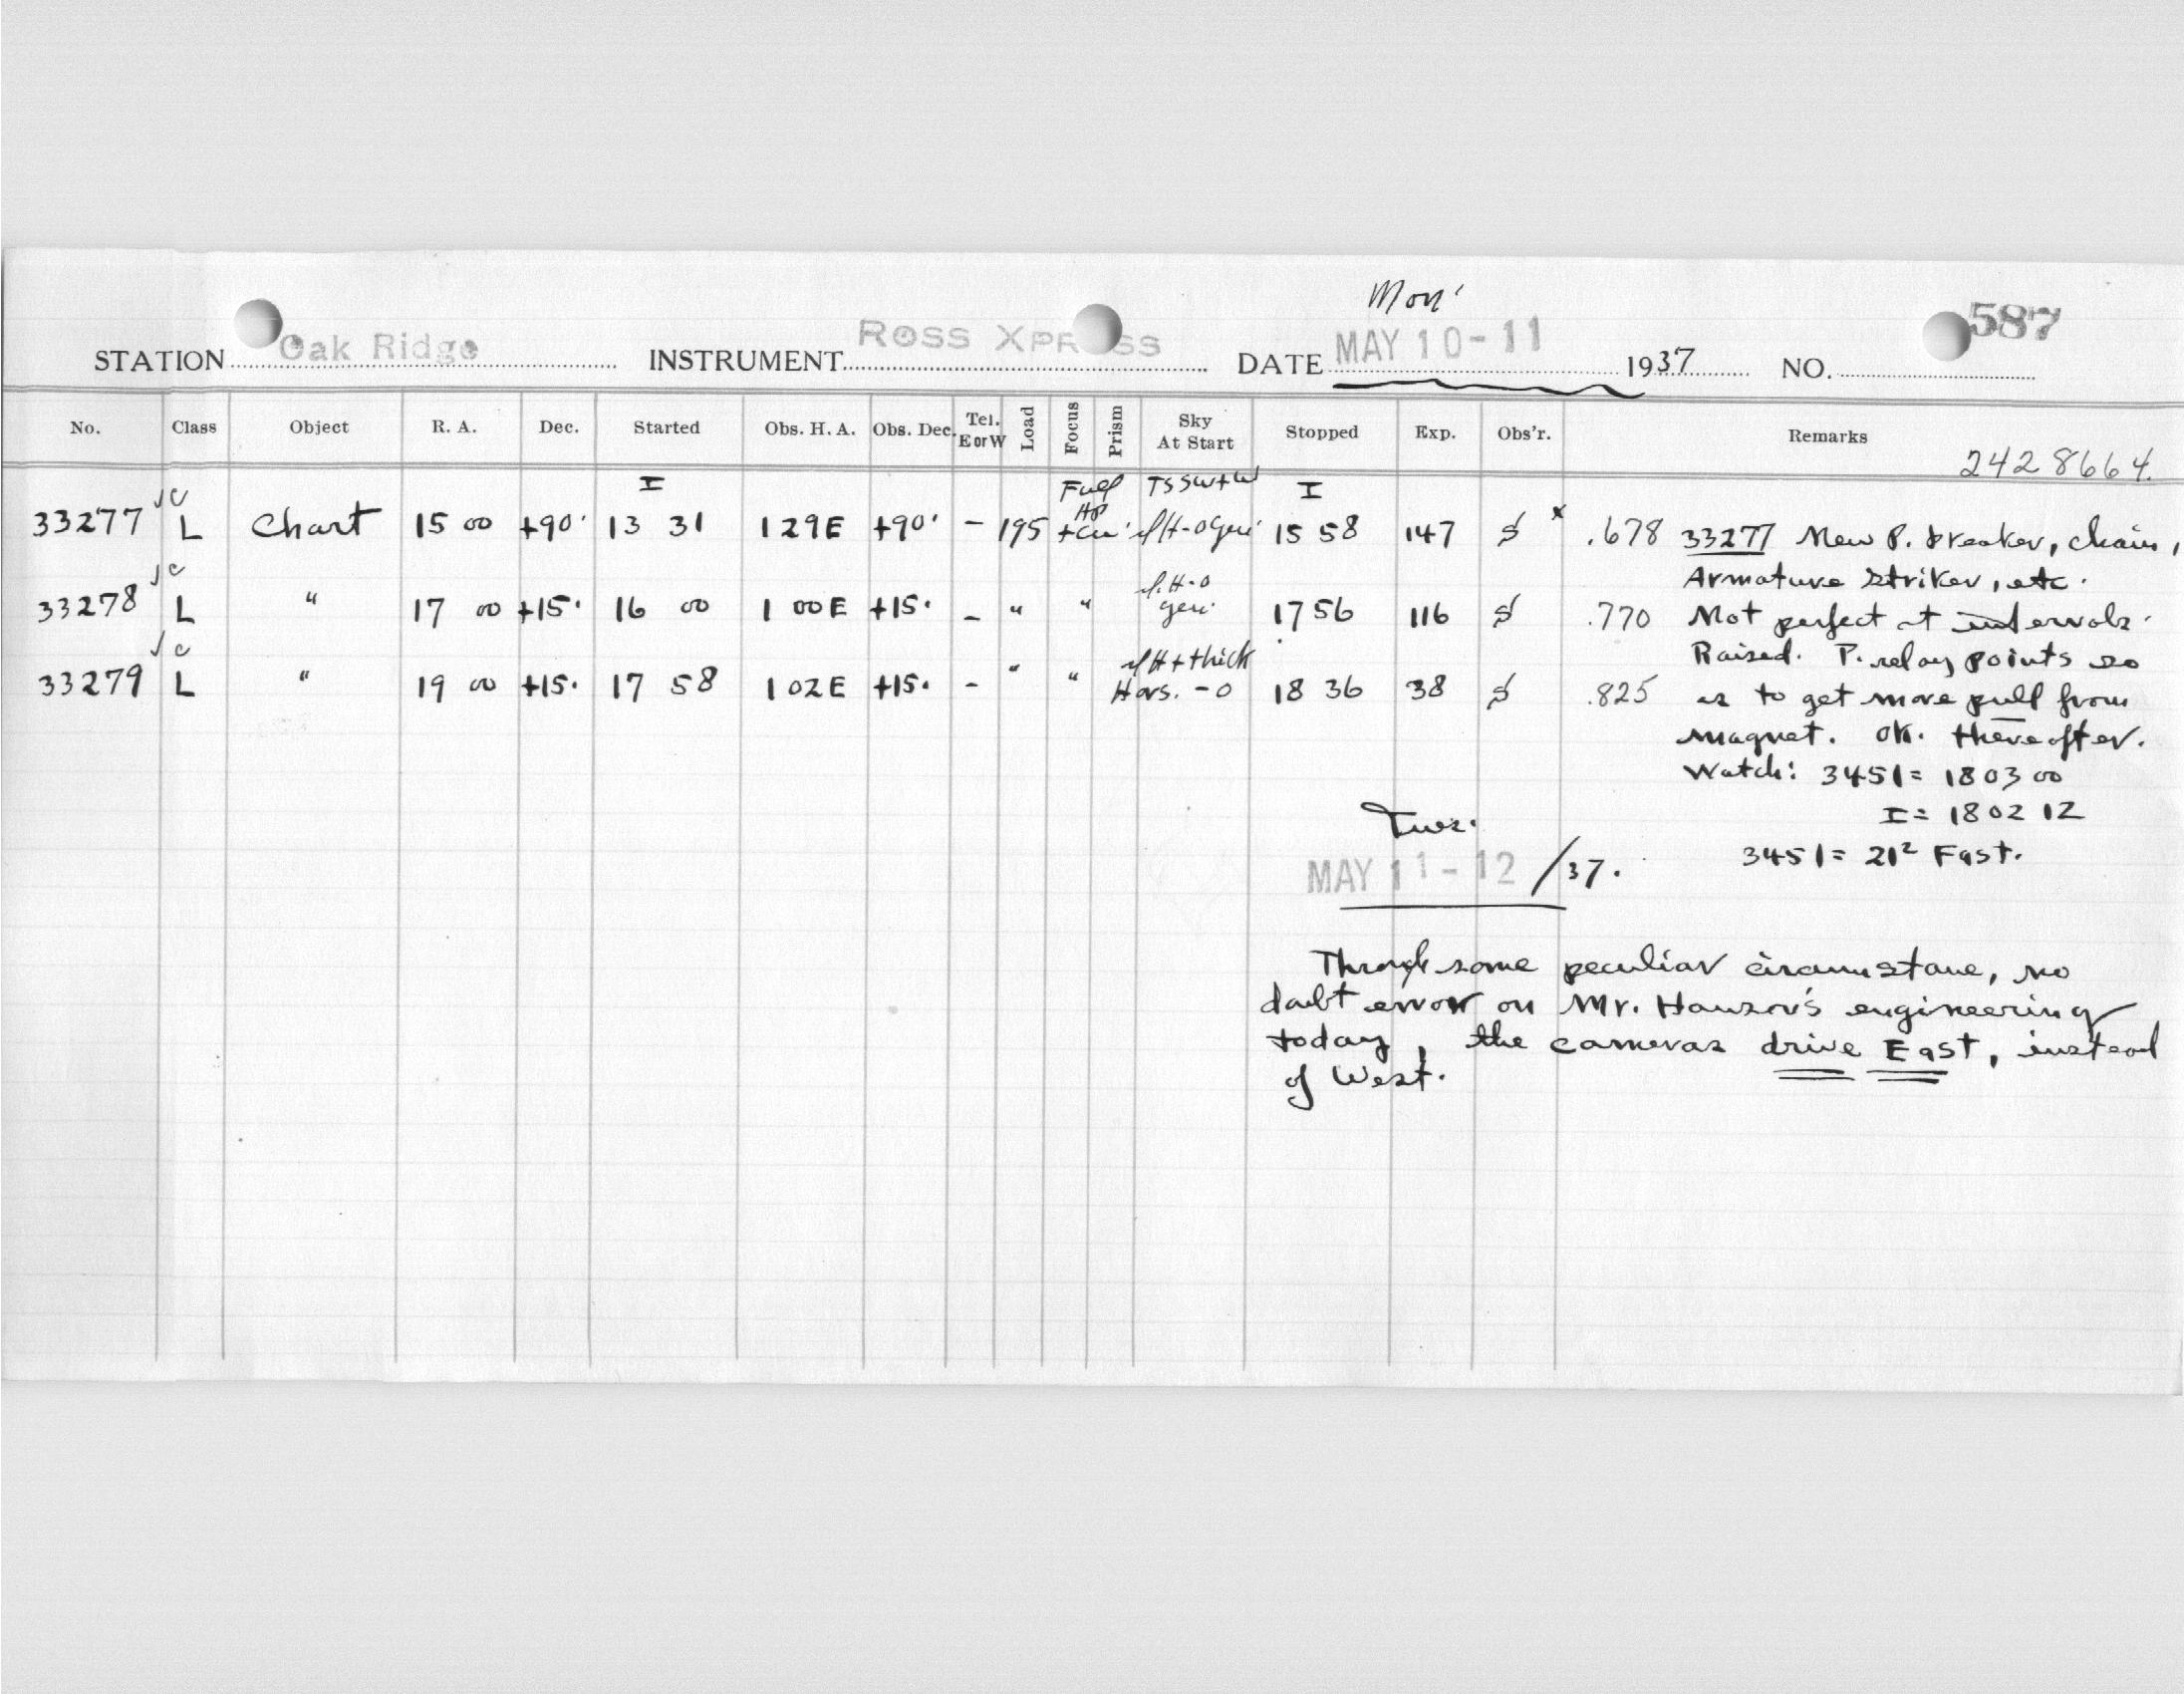 Mon'
STATION Oak Ridge INSTRUMENT ROSS XPRESS DATE MAY 10-11 1937 NO. 587
No. Class Object R. A. Dec. Started Obs. H. A. Obs. Dec. Tel. E or W Load Focus Prism Sky At Start Stopped Exp. Obs'r. Remarks
2428664.
I Full TSSW+W I
33277 L Chart 15 00 +90° 13 31 1 29E +90° - 195 15 58 147 .678 33277 New P. breaker, chain,
Armature striker, etc.
33278 L " 17 00 +15° 16 00 1 00E +15° - " " 17 56 116 .770 Not perfect at intervals.
Raised. P. relay points so
33279 L " 19 00 +15° 17 58 1 02E +15° - " " 18 36 38 .825 as to get more pull from
magnet. OK. thereafter.
Watch: 3451 = 18 03 00
I = 18 02 12
3451 = 21² Fast.
Tues.
MAY 11-12 /37.
Through some peculiar circumstane, no
doubt error on Mr. engineering
today, the cameras drive East, instead
of West.